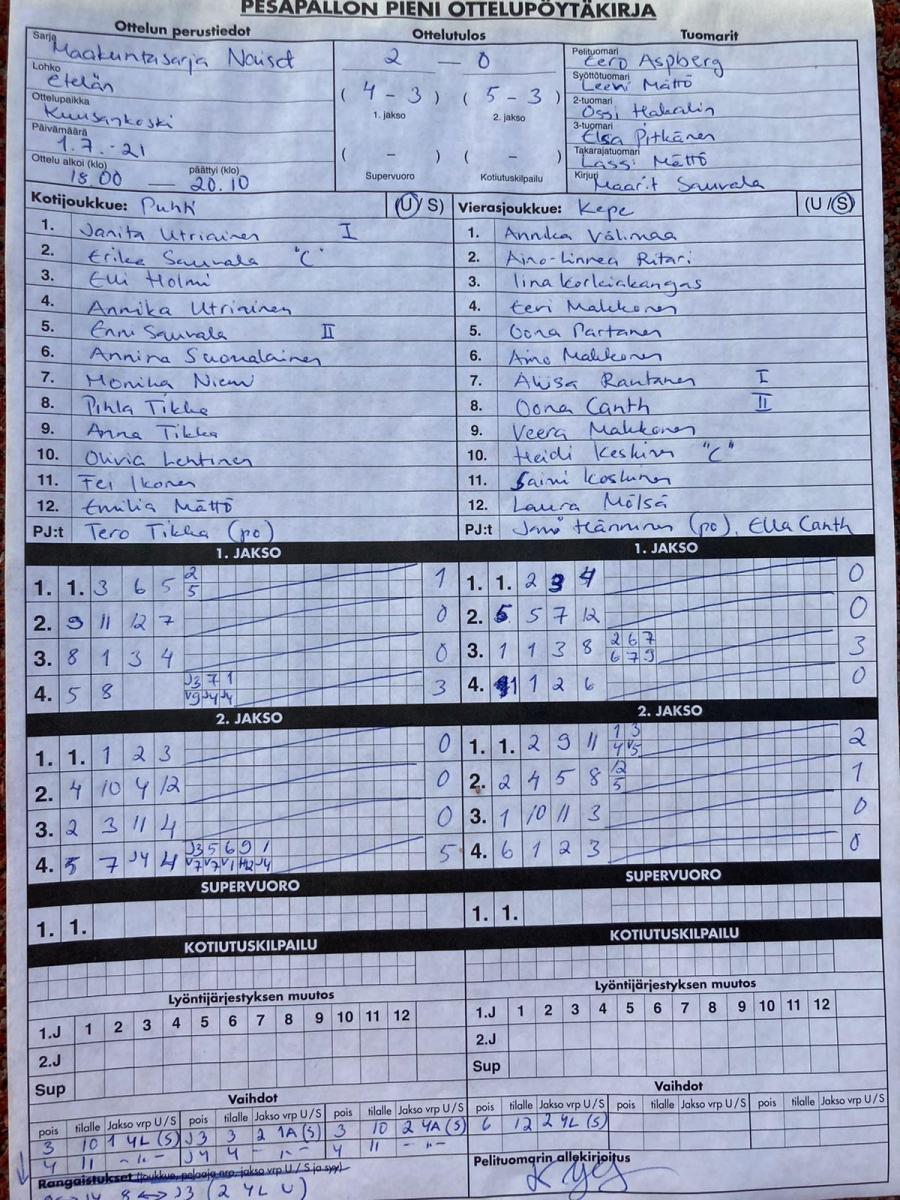 PESÄPALLON PIENI OTTELUPÖYTÄKIRJA
Ottelun perustiedot Ottelutulos Tuomarit
Sarja Maakuntasarja Naiset
Lohko Etelän
Ottelupaikka Kuusankoski
Päivämäärä 1.7.-21
Ottelu alkoi (klo) päättyi (klo)
18.00 — 20.10
2 — 0
( 4 - 3 ) ( 5 - 3 )
1. jakso 2. jakso
( - ) ( - )
Supervuoro Kotiutuskilpailu
Pelituomari Eero Aspberg
Syöttötuomari Leevi Mättö
2-tuomari Ossi Hakalin
3-tuomari Elsa Pitkänen
Takarajatuomari Lassi Mättö
Kirjuri Maarit Sauvala
Kotijoukkue: Puhti (U/S)
1. Janita Utriainen I
2. Erika Sauvala "C"
3. Elli Holmi
4. Annika Utriainen
5. Enni Sauvala II
6. Annina Suomalainen
7. Monika Niemi
8. Pihla Tikka
9. Anna Tikka
10. Olivia Lehtinen
11. Fei Ikonen
12. Emilia Mättö
PJ:t Tero Tikka (po)
Vierasjoukkue: Kepe (U/S)
1. Annika Välimaa
2. Aino-Linnea Ritari
3. Iina Korkiakangas
4. Eevi Makkonen
5. Oona Partanen
6. Aino Makkonen
7. Aliisa Rautanen I
8. Oona Canth II
9. Veera Makkonen
10. Heidi Keskinen "C"
11. Saini Koskinen
12. Laura Mölsä
PJ:t Hänninen (po), Ella Canth
1. JAKSO
1. 1. 3 6 5 2 1
5
2. 9 11 12 7 0
3. 8 1 3 4 0
4. 5 8 J3 7 1 3
V9 J4 J4
1. JAKSO
1. 1. 2 3 4 0
2. 5 5 7 12 0
3. 1 1 3 8 2 6 7 3
6 7 9
4. 11 1 2 6 0
2. JAKSO
1. 1. 1 2 3 0
2. 4 10 4 12 0
3. 2 3 11 4 0
4. 5 7 J4 4 J3 5 6 9 1 5
V7 V7 V1 H2 J4
2. JAKSO
1. 1. 2 9 11 1 3 2
4 V5
2. 2 4 5 8 12 1
5
3. 1 10 11 3 0
4. 6 1 2 3 0
SUPERVUORO
1. 1.
SUPERVUORO
1. 1.
KOTIUTUSKILPAILU
KOTIUTUSKILPAILU
Lyöntijärjestyksen muutos
1.J 1 2 3 4 5 6 7 8 9 10 11 12
2.J
Sup
Lyöntijärjestyksen muutos
1.J 1 2 3 4 5 6 7 8 9 10 11 12
2.J
Sup
Vaihdot
pois tilalle Jakso vrp U/S pois tilalle Jakso vrp U/S pois tilalle Jakso vrp U/S
3 10 1 4L (S) J3 3 2 1A (S) 3 10 2 4A (S)
4 11 - " - J4 4 - " - 4 11 - " -
Rangaistukset (joukkue, pelaaja nro, jakso vrp U/S ja syy)
8 <-> J3 (2 4L U)
Vaihdot
pois tilalle Jakso vrp U/S pois tilalle Jakso vrp U/S pois tilalle Jakso vrp U/S
6 12 2 4L (S)
Pelituomarin allekirjoitus